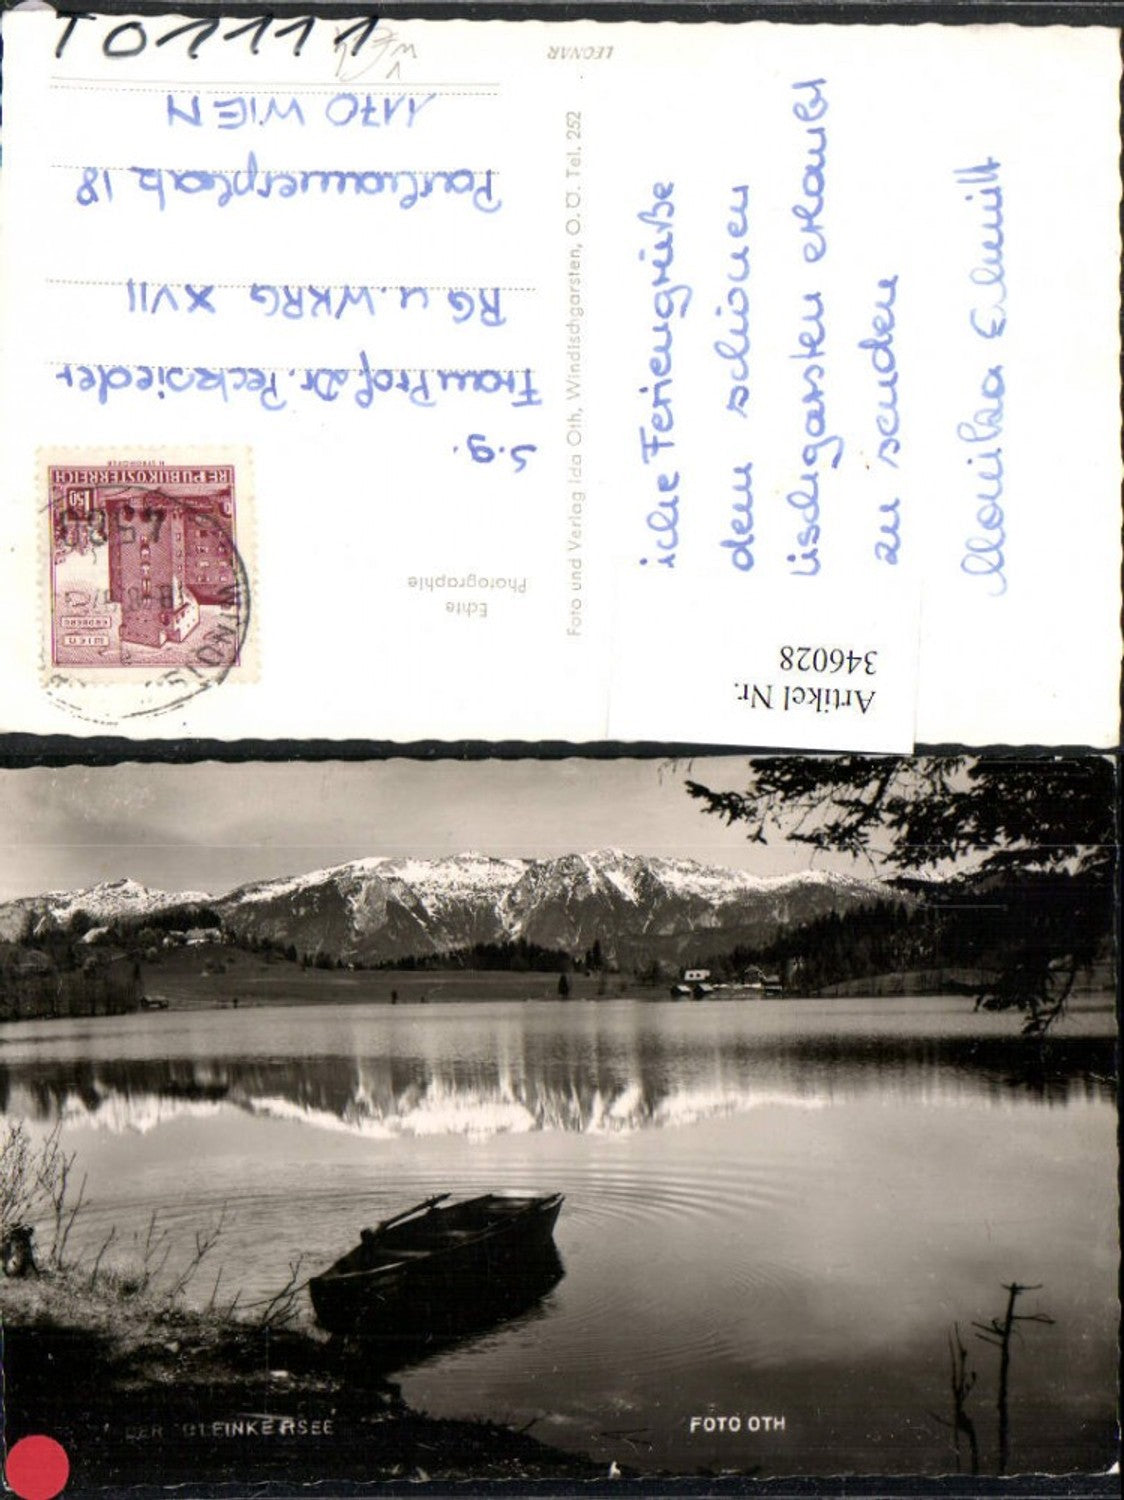 T 01111
S.g.
Frau Prof. Dr. Pecksieder
RG u. WKRG XVII
Parhamerplatz 18
1170 WIEN
REPUBLIK ÖSTERREICH
1.50
WIEN
ERDBERG
WINDISC
Echte
Photographie
Foto und Verlag Ida Oth, Windischgarsten, O. Ö. Tel. 252
LEONAR
iche Feriengrüße
dem schönen
dischgarsten erlaubt
zu senden
Monika
Artikel Nr.
346028
DER GLEINKERSEE
FOTO OTH